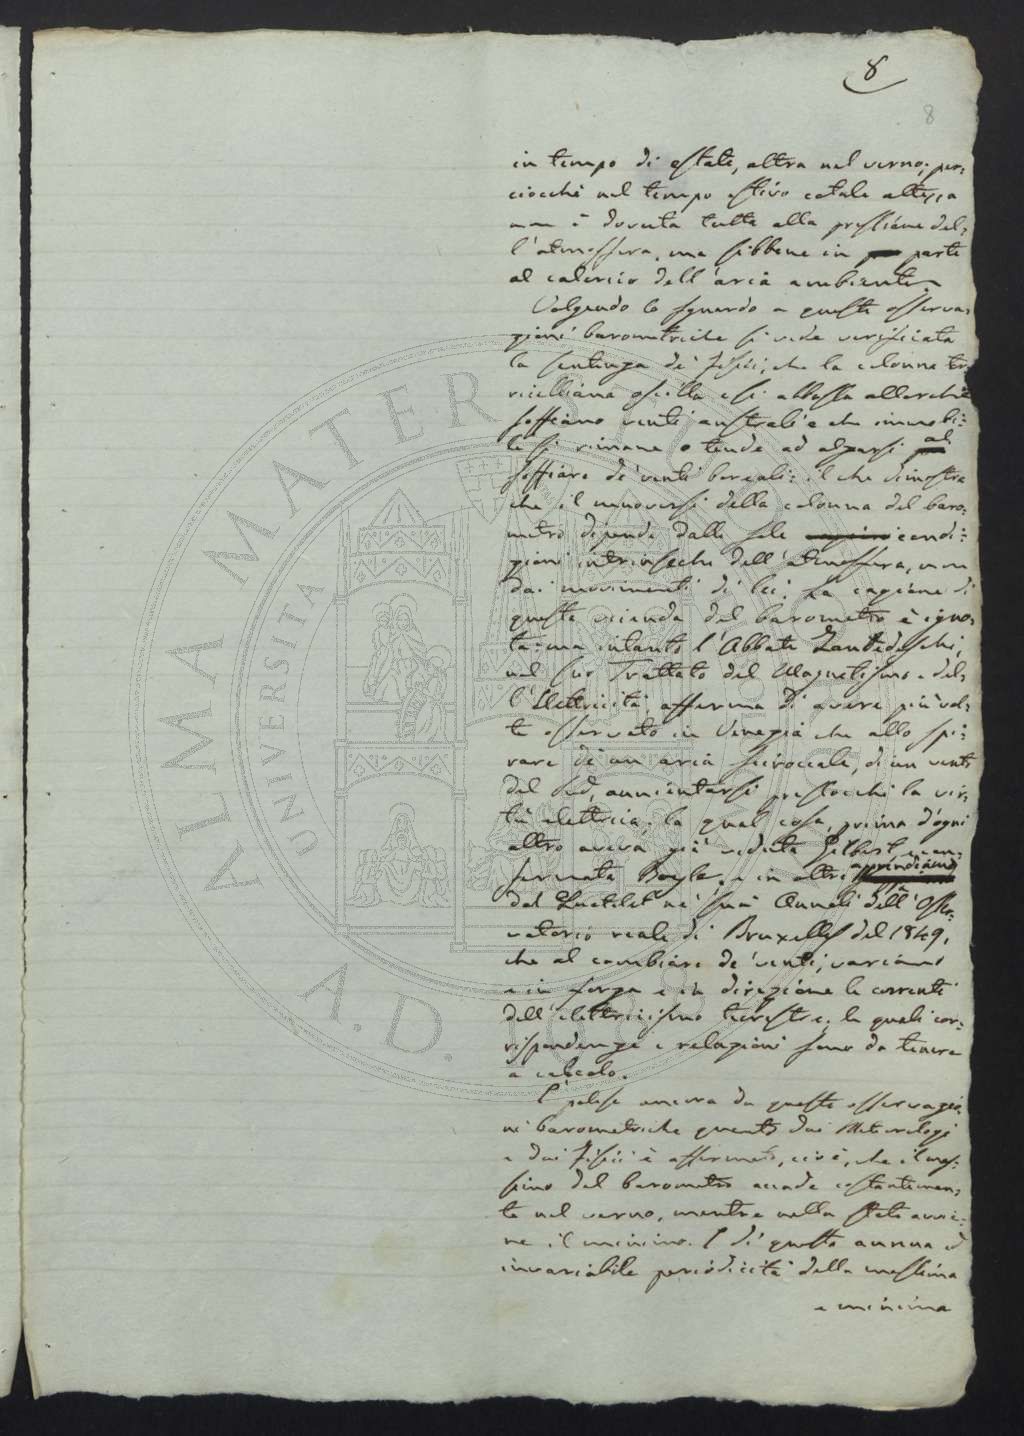 8
8
in tempo di estate, altra nel verno; per-
ciocchè nel tempo estivo cotale altezza
non è dovuta tutta alla pressione del-
l'atmosfera, ma sibbene in parte
al calorico dell'aria ambiente.
Volgendo lo sguardo a queste osserva-
zioni barometriche si vede verificata
la sentenza de' fisici, che la colonna tor-
ricelliana oscilla e si abbassa allorchè
soffiano venti australi e che immobi-
le si rimane o tende ad alzarsi al
soffiare de' venti boreali: il che dimostra
che il muoversi della colonna del baro-
metro dipende dalle sole condi-
zioni intrinseche dell'atmosfera, non
dai movimenti di lei. La cagione di
questa vicenda del barometro è igno-
ta: ma intanto l'Abbate Zantedeschi,
nel suo Trattato del Magnetismo e del-
l'Elettricità, afferma di avere più vol-
te osservato in Venezia che allo spi-
rare di un aria sciroccale, di un vento
del Sud, aumentarsi pressocchè la vir-
tù elettrica; la qual cosa, prima d'ogni
altro aveva già veduta Gilbert e con-
fermata Boyle, e in oltre apprendiamo
dal Quetelet ne' suoi Annali dell'Osser-
vatorio reale di Bruxelles del 1849,
che al cambiare de' venti, variano
e in forza e in direzione le correnti
dell'elettricismo terrestre; le quali cor-
rispondenze e relazioni sono da tenere
a calcolo.
È palese ancora da queste osservazio-
ni barometriche quanto dai Meteorologi
e dai Fisici è affermato, cioè, che il mas-
simo del barometro accade costantemen-
te nel verno, mentre nella state avvie-
ne il minimo. E di questa annua ed
invariabile periodicità della massima
e minima
ALMA MATER STUDIORUM
UNIVERSITA
A.D.